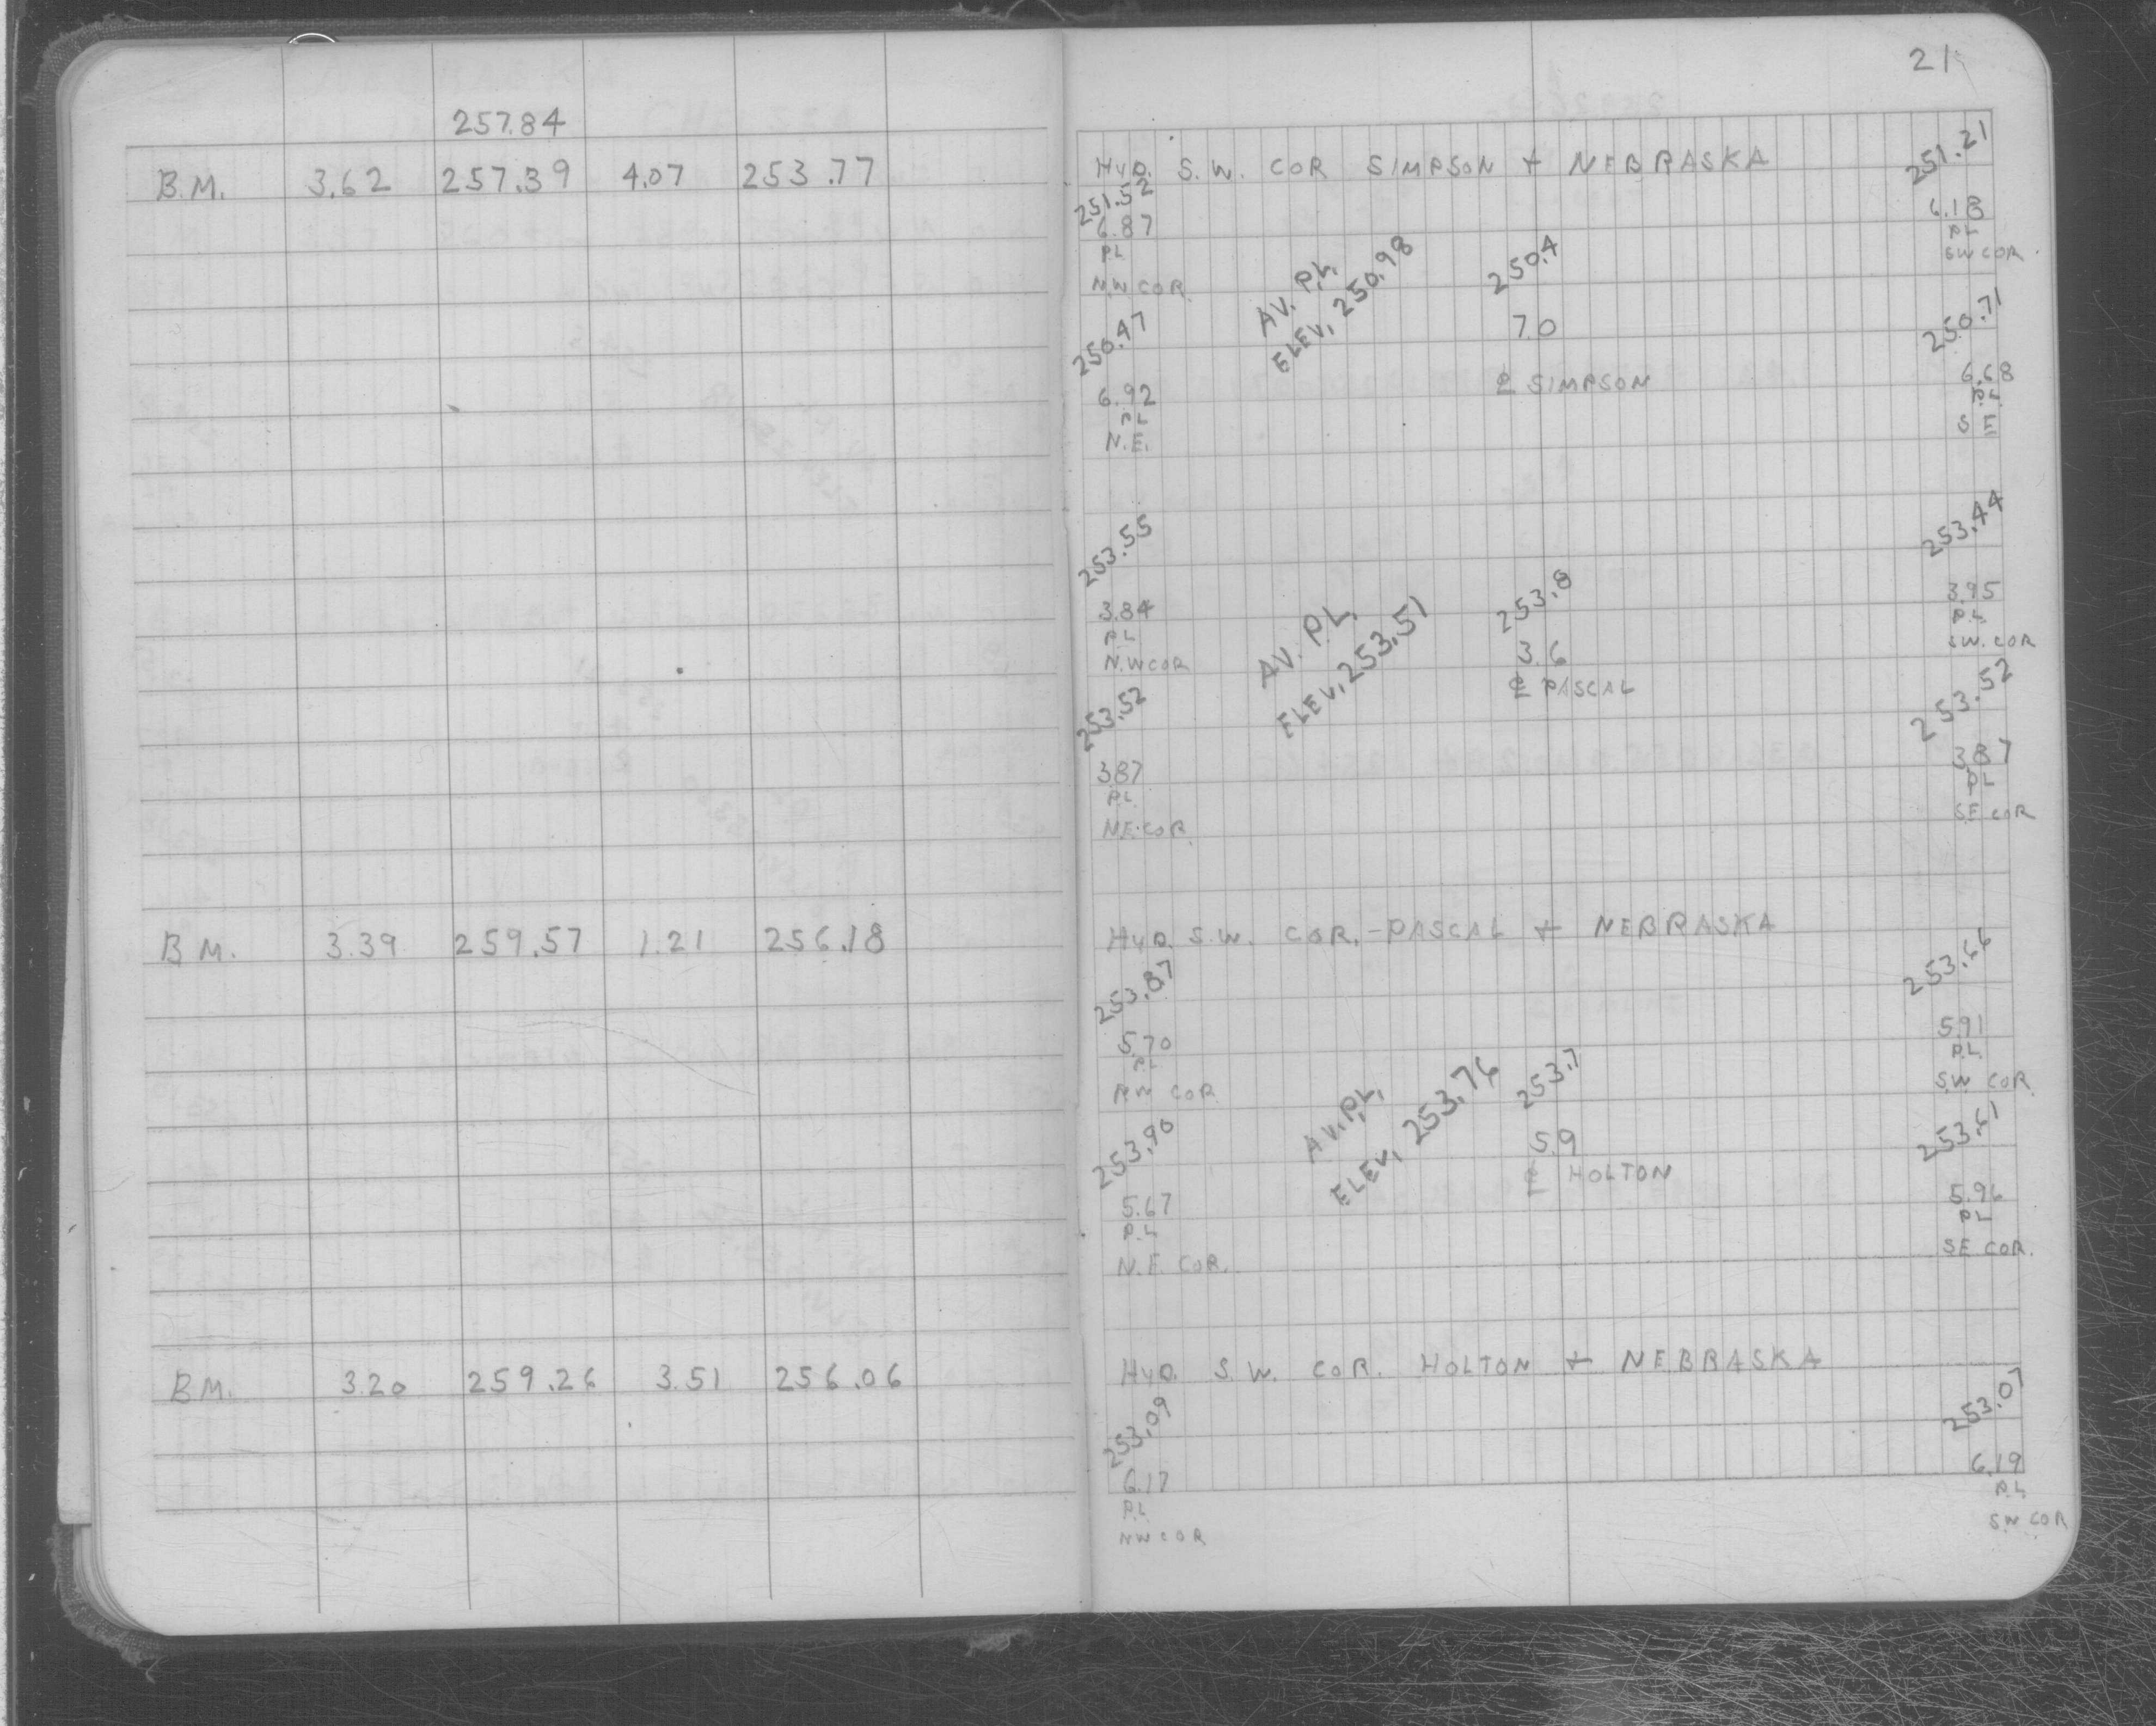 257.84
B.M. 3.62 257.39 4.07 253.77
B.M. 3.39 259.57 1.21 256.18
B.M. 3.20 259.26 3.51 256.06
21
HYD. S.W. COR SIMPSON + NEBRASKA
251.52 251.21
6.87 6.18
PL PL
N.W COR. SW COR.
AV. P.L. 250.4
ELEV. 250.98
250.47 7.0 250.71
℄ SIMPSON
6.92 6.68
PL P.L.
N.E. S E
253.55 253.44
3.84 3.95
P.L P.L
N.W COR SW. COR
AV. P.L. 253.8
ELEV. 253.51 3.6
℄ PASCAL
253.52 253.52
3.87 3.87
P.L. PL
N.E. COR. S.E COR
HYD. S.W. COR.-PASCAL + NEBRASKA
253.87 253.66
5.70 5.91
P.L P.L.
N.W COR S.W COR.
AV. P.L. 253.7
ELEV. 253.76
253.90 5.9 253.61
℄ HOLTON
5.67 5.96
P.L PL
N.E. COR. SE COR.
HYD. S.W. COR. HOLTON + NEBRASKA
253.09 253.07
6.17 6.19
P.L P.L.
N W COR S.W COR